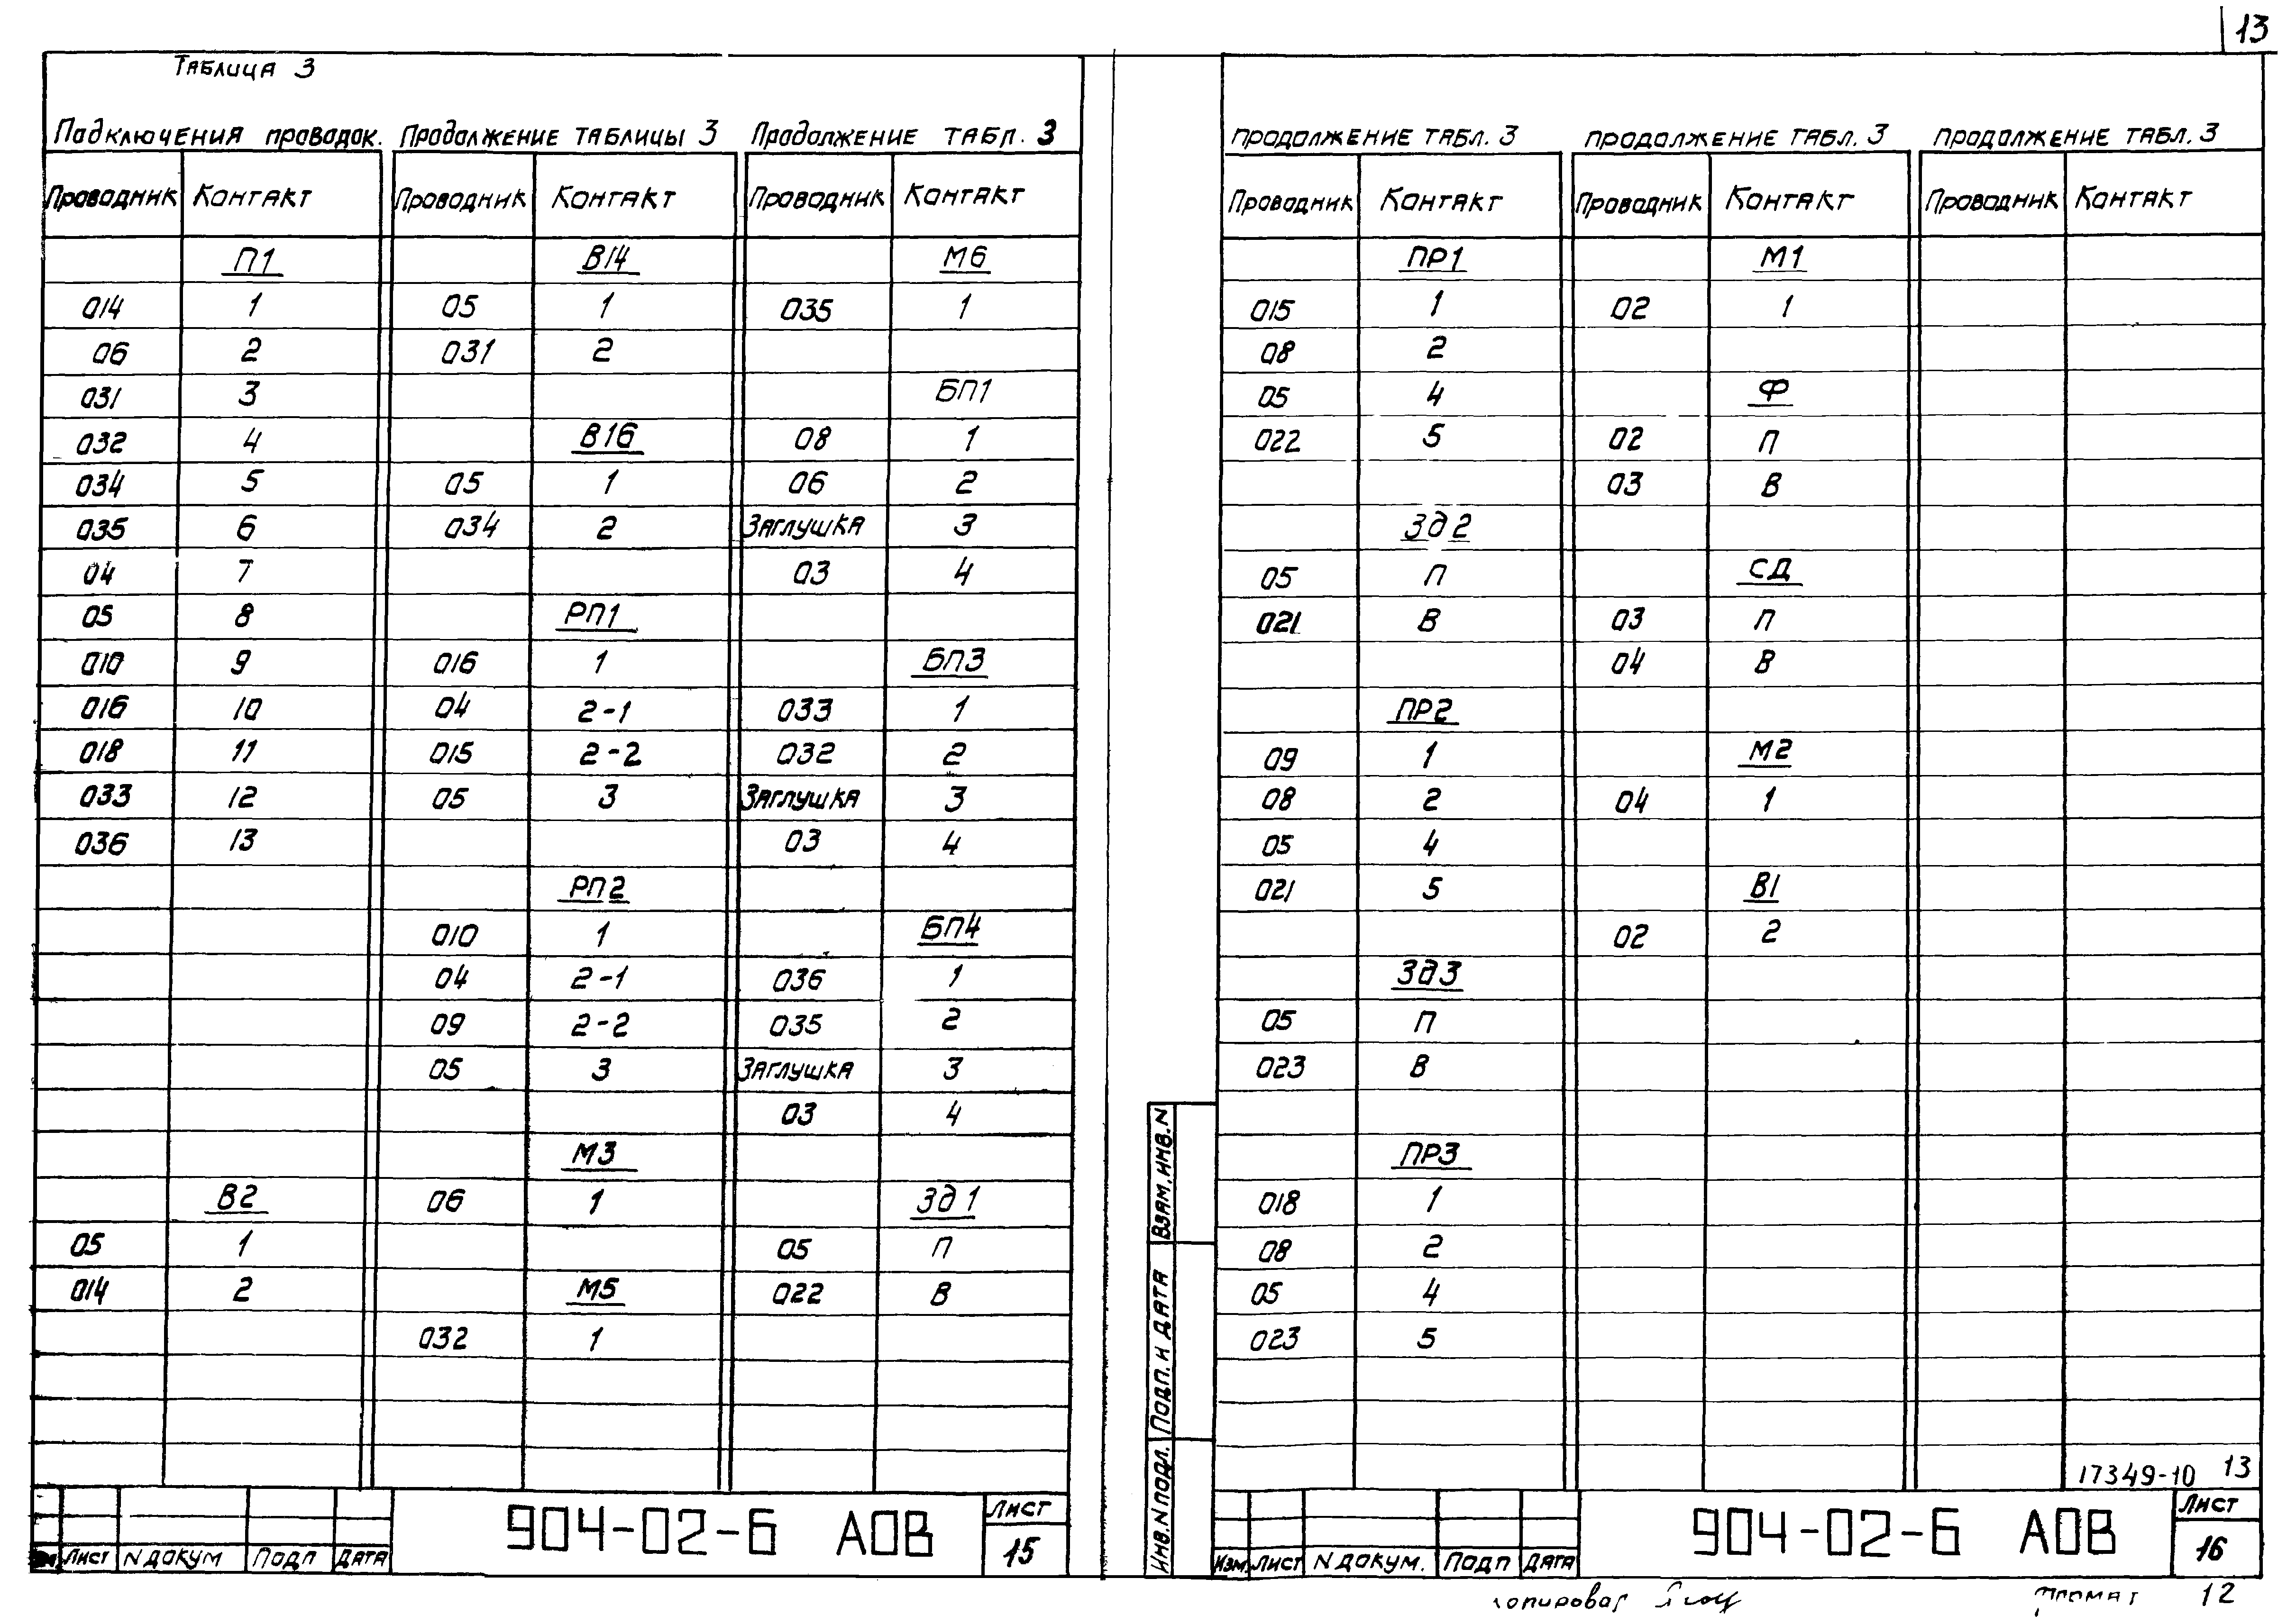 13
Таблица 3
Подключения проводок.
Проводник Контакт
П1
014 1
06 2
031 3
032 4
034 5
035 6
04 7
05 8
010 9
016 10
018 11
033 12
036 13
В2
05 1
014 2
Продолжение таблицы 3
Проводник Контакт
В14
05 1
031 2
В16
05 1
034 2
РП1
016 1
04 2-1
015 2-2
05 3
РП2
010 1
04 2-1
09 2-2
05 3
М3
06 1
М5
032 1
Продолжение табл. 3
Проводник Контакт
М6
035 1
БП1
08 1
06 2
Заглушка 3
03 4
БП3
033 1
032 2
Заглушка 3
03 4
БП4
036 1
035 2
Заглушка 3
03 4
Зд1
05 П
022 В
Лист N докум Подп Дата
904-02-6 АОВ
Лист
15
Продолжение табл. 3
Проводник Контакт
ПР1
015 1
08 2
05 4
022 5
Зд2
05 П
021 В
ПР2
09 1
08 2
05 4
021 5
Зд3
05 П
023 В
ПР3
018 1
08 2
05 4
023 5
Продолжение табл. 3
Проводник Контакт
М1
02 1
Ф
02 П
03 В
СД
03 П
04 В
М2
04 1
В1
02 2
Продолжение табл. 3
Проводник Контакт
Взам. инв. N
Подп. и дата
Инв. N подл.
17349-10 13
Изм. Лист N докум. Подп Дата
904-02-6 АОВ
Лист
16
Копировал
Формат 12